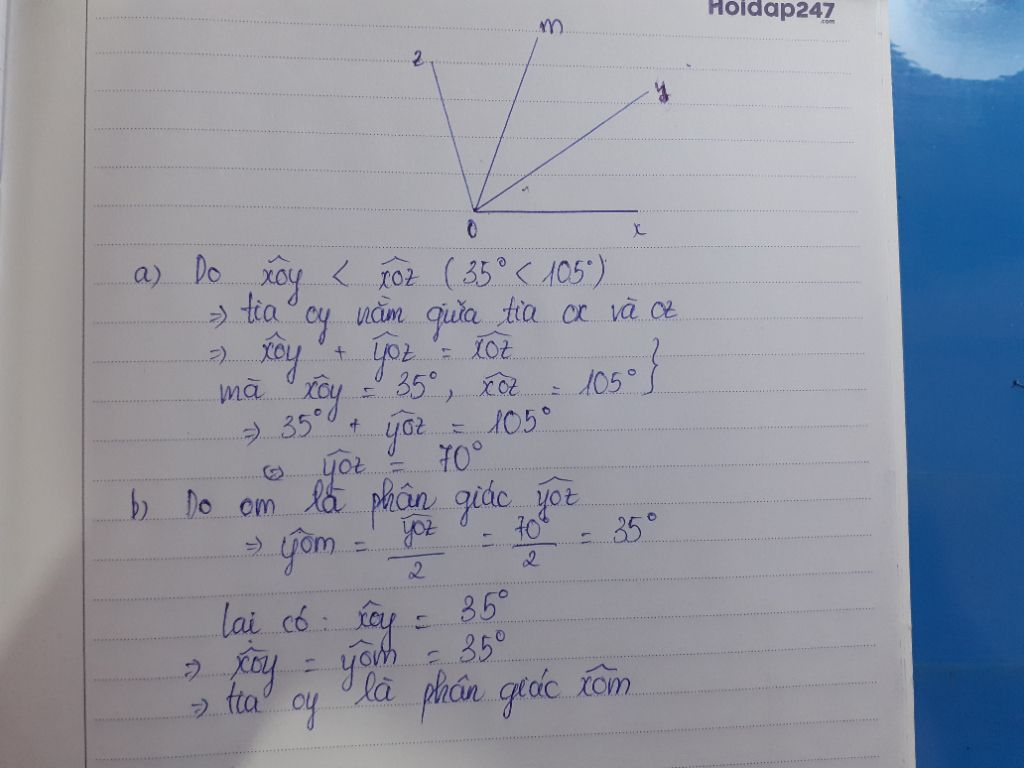 Hoidap247
.com
m
z
y
O
x
a) Do xôy < xôz (35° < 105°)
=> tia oy nằm giữa tia ox và oz
=> xôy + yôz = xôz
mà xôy = 35°, xôz = 105° }
=> 35° + yôz = 105°
<=> yôz = 70°
b) Do om là phân giác yôz
=> yôm = yôz/2 = 70°/2 = 35°
lại có: xôy = 35°
=> xôy = yôm = 35°
=> tia oy là phân giác xôm